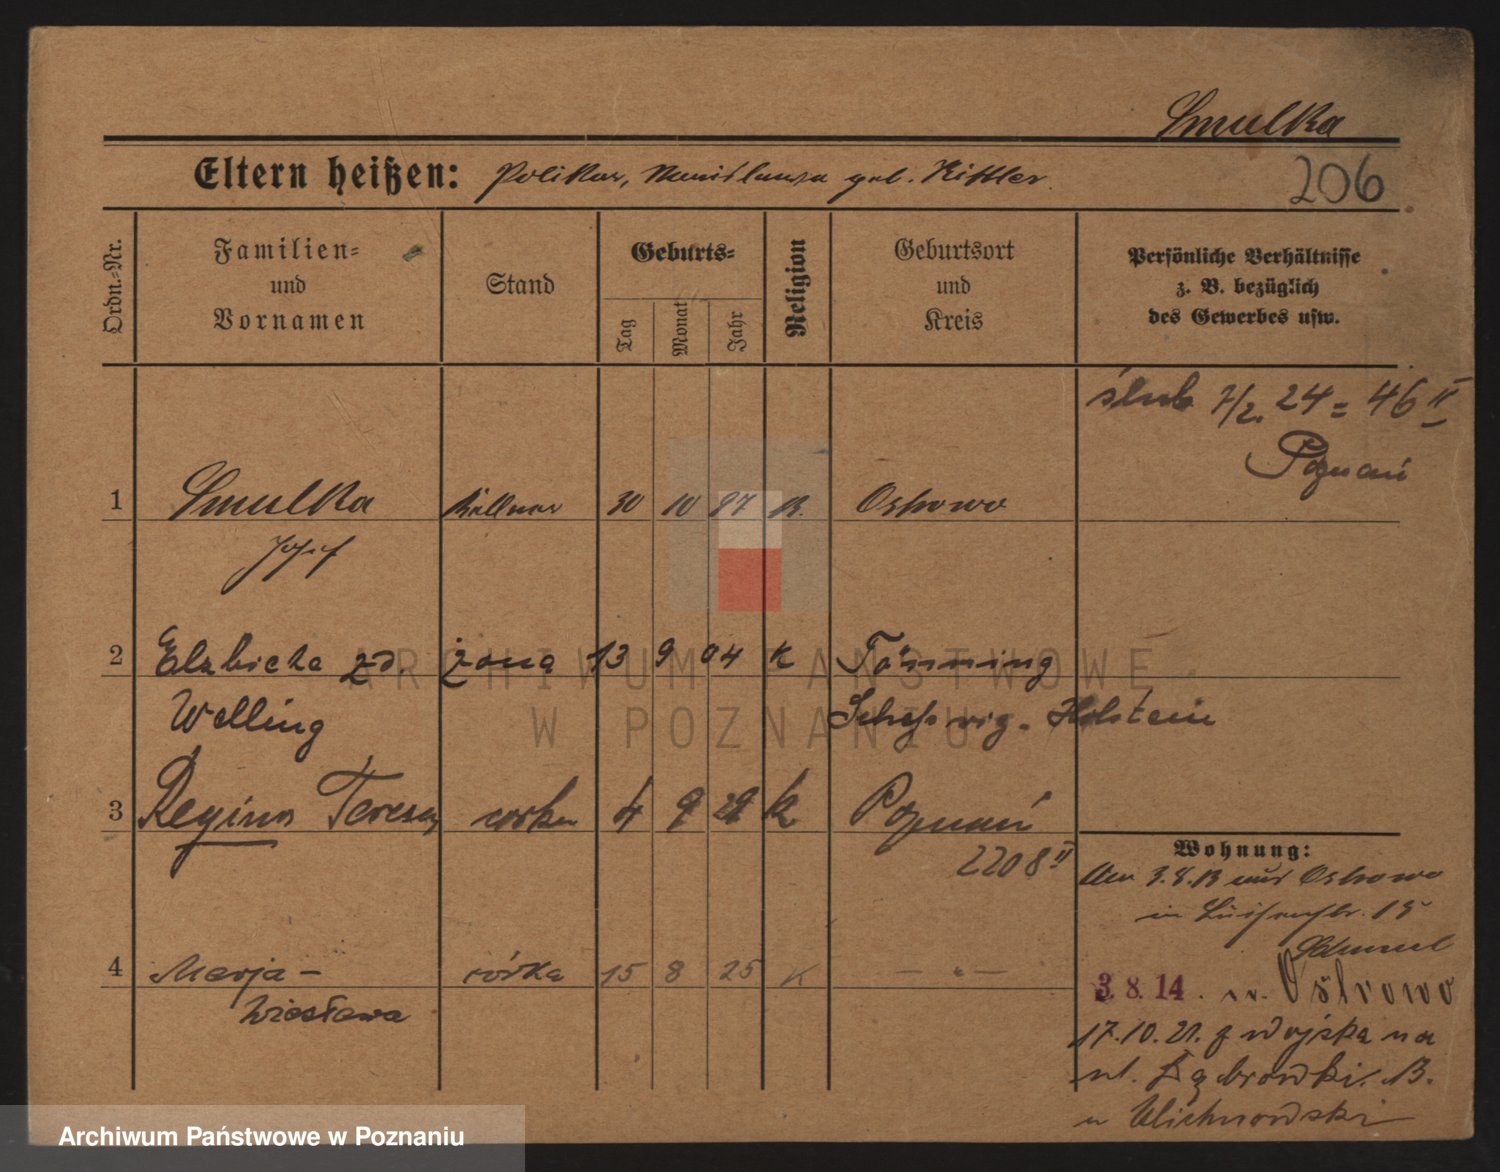 Smulka
Eltern heißen: Polikar, Stanislawa geb. Kittler
206
Ordn.-Nr.
Familien-
und
Vornamen
Stand
Geburts-
Tag
Monat
Jahr
Religion
Geburtsort
und
Kreis
Persönliche Verhältnisse
z. B. bezüglich
des Gewerbes usw.
ślub 7/2. 24 = 46 II
Poznań
1 Smulka Kellner 30 10 87 K. Ostrowo
Josef
2 Elzbieta zd. żona 13 9 04 K Tönning
Welling Schleswig-Holstein
3 Regina Teresa córka 4 9 29 K Poznań
2208 II
4 Marja- córka 15 8 25 K — " —
Wiesława
Wohnung:
Am 3.8.13 aus Ostrowo
in Luisenstr. 15
3. 8. 14. n. Ostrowo
17.10.21. z wojska na
ul. Dąbrowski. 13.
u Wichnowski
ARCHIWUM PAŃSTWOWE
W POZNANIU
Archiwum Państwowe w Poznaniu